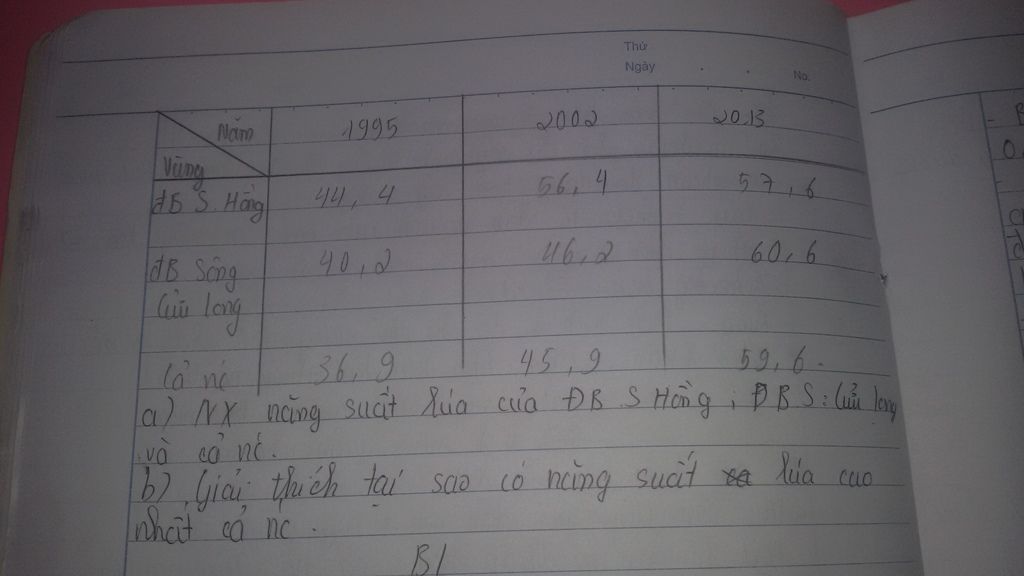 Thứ
Ngày
No.
Năm 1995 2002 2013
Vùng
đB S. Hồng 44,4 56,4 57,6
đB Sông 40,2 46,2 60,6
Cửu long
Cả nc 36,9 45,9 59,6.
a) NX năng suất lúa của ĐB S Hồng, ĐB S. Cửu long
và cả nc.
b) Giải thích tại sao có năng suất lúa cao
nhất cả nc.
B1